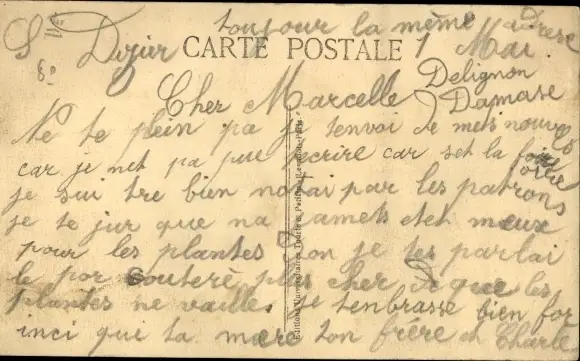 toujour la même adrese
CARTE POSTALE
S Dejur 1 Mai
Delignon
Damase
Cher Marcelle
Ne te plein pa je tenvoi de mes nouvels
car je net pa pue écrire car set la foire
je sui tre bien par les patrons
je te jur que na jamets etet meux
pour les plantes don je tes parlai
le por couterè plus cher que les
plantes ne vaille. Je tenbrasse bien for
inci que ta mære ton frère et Charle